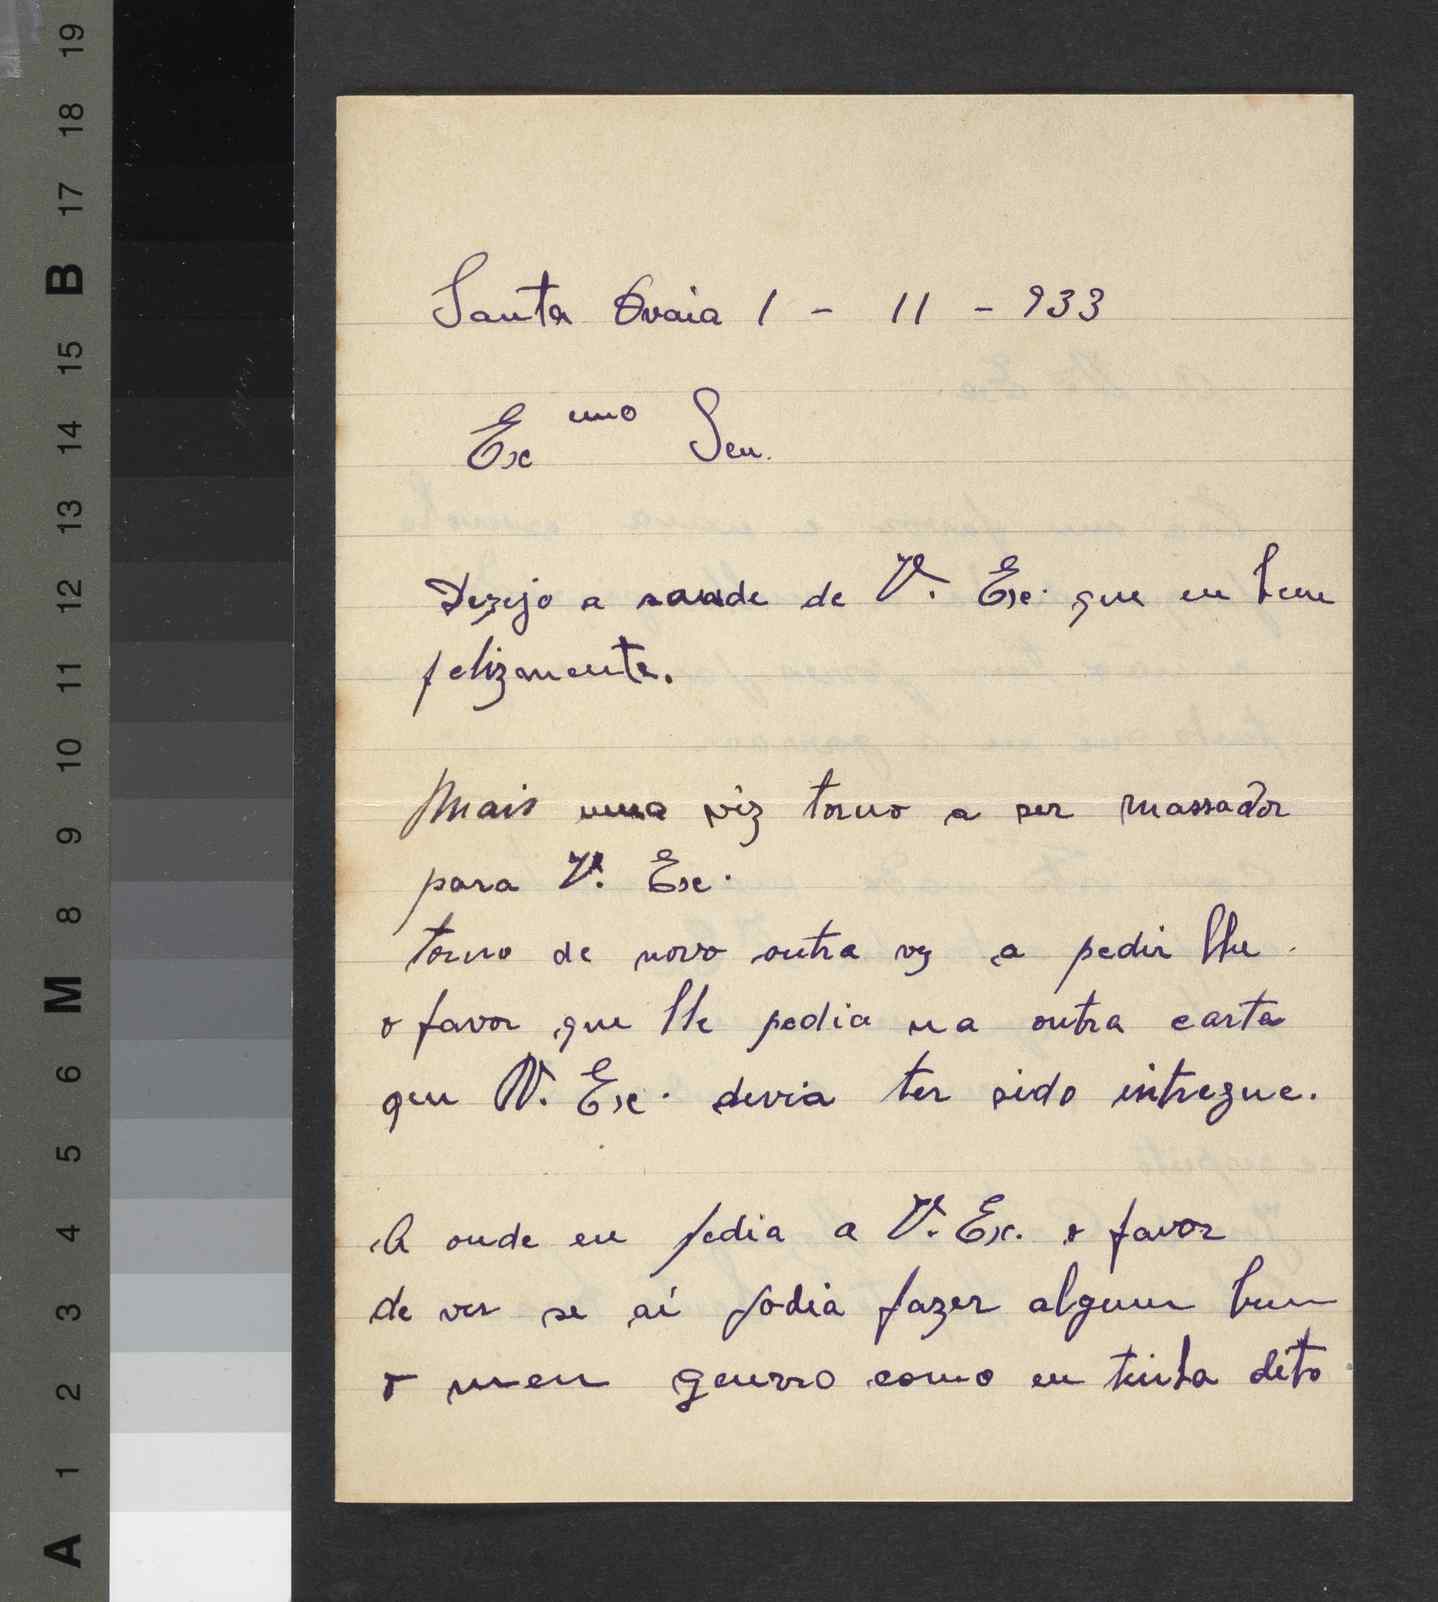 Santa Ovaia 1 - 11 - 933
Ex mo Sen.
Dezejo a saude de V. Exc. que eu bem
felizmente.
Mais uma viz torno a ser massador
para V. Exc.
torno de novo outra vz a pedir lhe
o favor que lhe pedia na outra carta
que V. Exc. devia ter sido intregue.
A onde eu pedia a V. Ex. o favor
de ver se aí podia fazer algum bem
o meu genrro como eu tinha dito
B 19 18 17 16 15 14 13 12 11 10 9 8 M 6 5 4 3 2 1 A